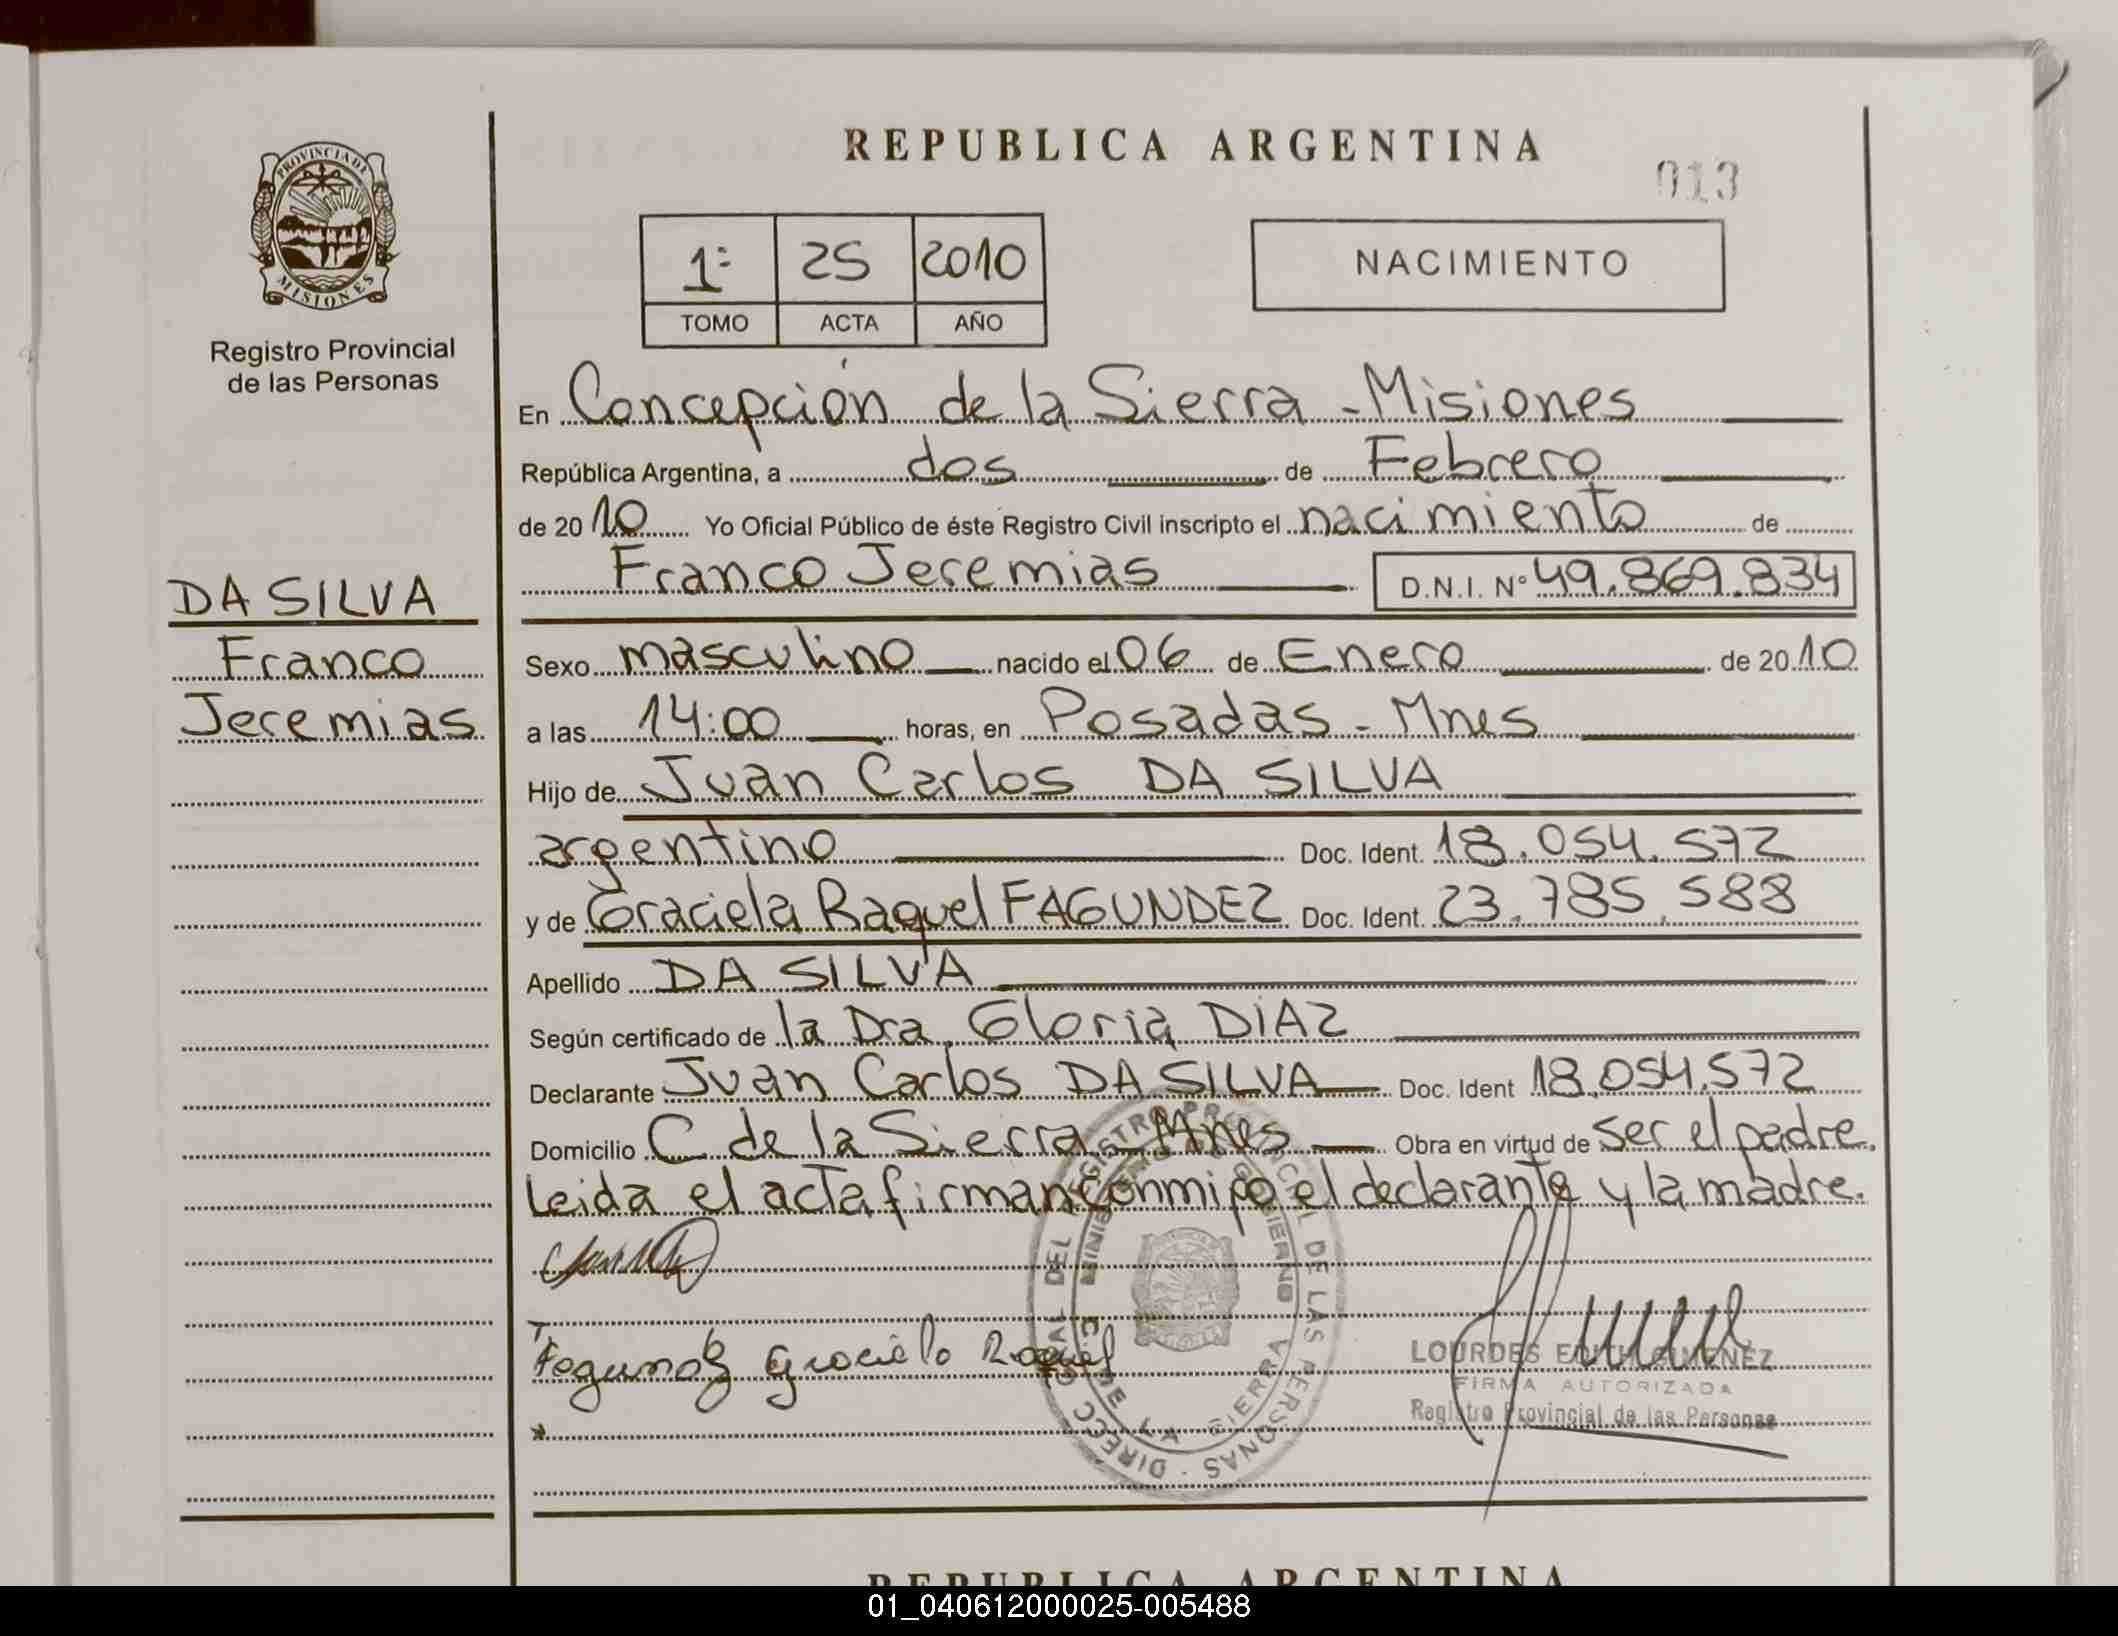 REPUBLICA ARGENTINA
013
PROVINCIA DE
MISIONES
Registro Provincial
de las Personas
1º 25 2010
TOMO ACTA AÑO
NACIMIENTO
En Concepción de la Sierra - Misiones
República Argentina, a dos de Febrero
de 2010 Yo Oficial Público de éste Registro Civil inscripto el nacimiento de
Franco Jeremias D.N.I. Nº 49.869.834
DA SILVA
Franco
Jeremias
Sexo masculino nacido el 06 de Enero de 2010
a las 14:00 horas, en Posadas - Mnes
Hijo de Juan Carlos DA SILVA
argentino Doc. Ident. 18.054.572
y de Graciela Raquel FAGUNDEZ Doc. Ident. 23.785.588
Apellido DA SILVA
Según certificado de la Dra. Gloria DIAZ
Declarante Juan Carlos DA SILVA Doc. Ident 18.054.572
Domicilio C de la Sierra - Mnes Obra en virtud de ser el padre.
Leida el acta firman conmigo el declarante y la madre.
DIRECC GRAL DEL REGISTRO PROVINCIAL DE LAS PERSONAS -
MINISTERIO GOBIERNO
C. DE LA SIERRA
LOURDES EDITH GIMENEZ
FIRMA AUTORIZADA
Registro Provincial de las Personas
REPUBLICA ARGENTINA
01_040612000025-005488